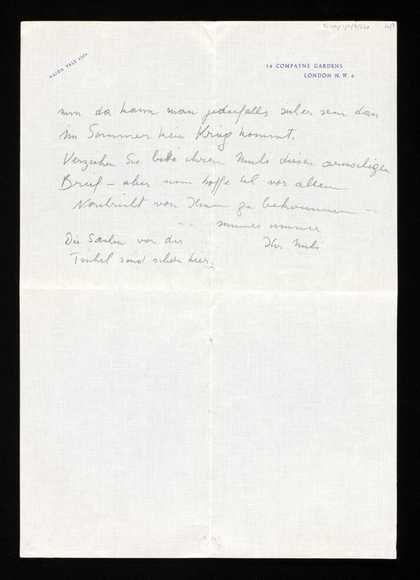 MAIDA VALE
14 COMPAYNE GARDENS
LONDON N.W. 6
nun da kann man jedenfalls sicher sein dass
im Sommer kein Krieg kommt.
Verzeihen Sie bitte Ihrem Muli diesen armseligen
Brief – aber nun hoffe ich vor allem
Nachricht von Ihnen zu bekommen –
immer
Die Sachen von der
Ihr Muli
sind schon hier.